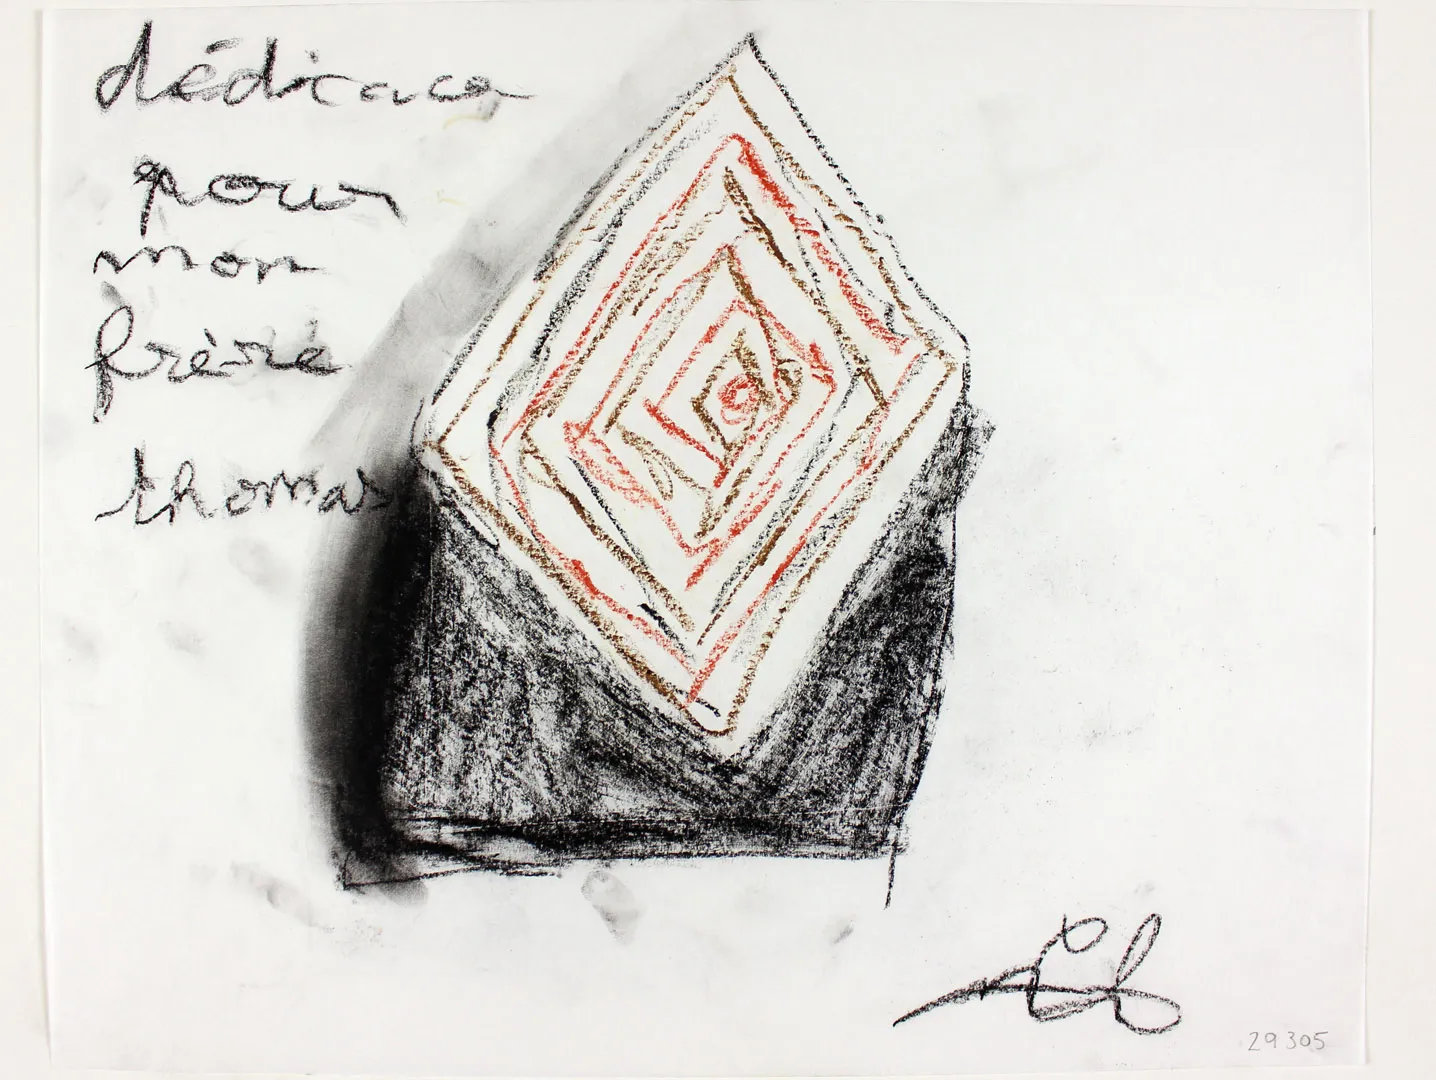 dédicace
pour
mon
frère
thomas
29305